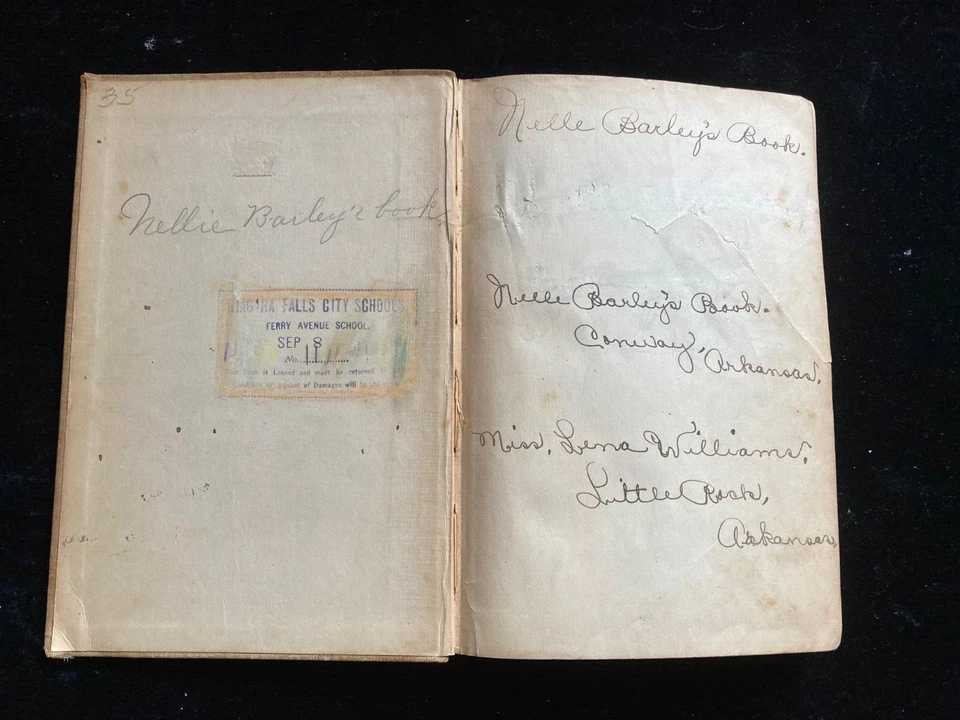 35
Nellie Barley's book
NIAGARA FALLS CITY SCHOOLS
FERRY AVENUE SCHOOL.
SEP 8
No. 11
Book is Loaned and must be returned
of Damages will
Nelle Barley's Book.
Nelle Barley's Book.
Conway, Arkansas.
Miss. Lena Williams,
Little Rock,
Arkansas,